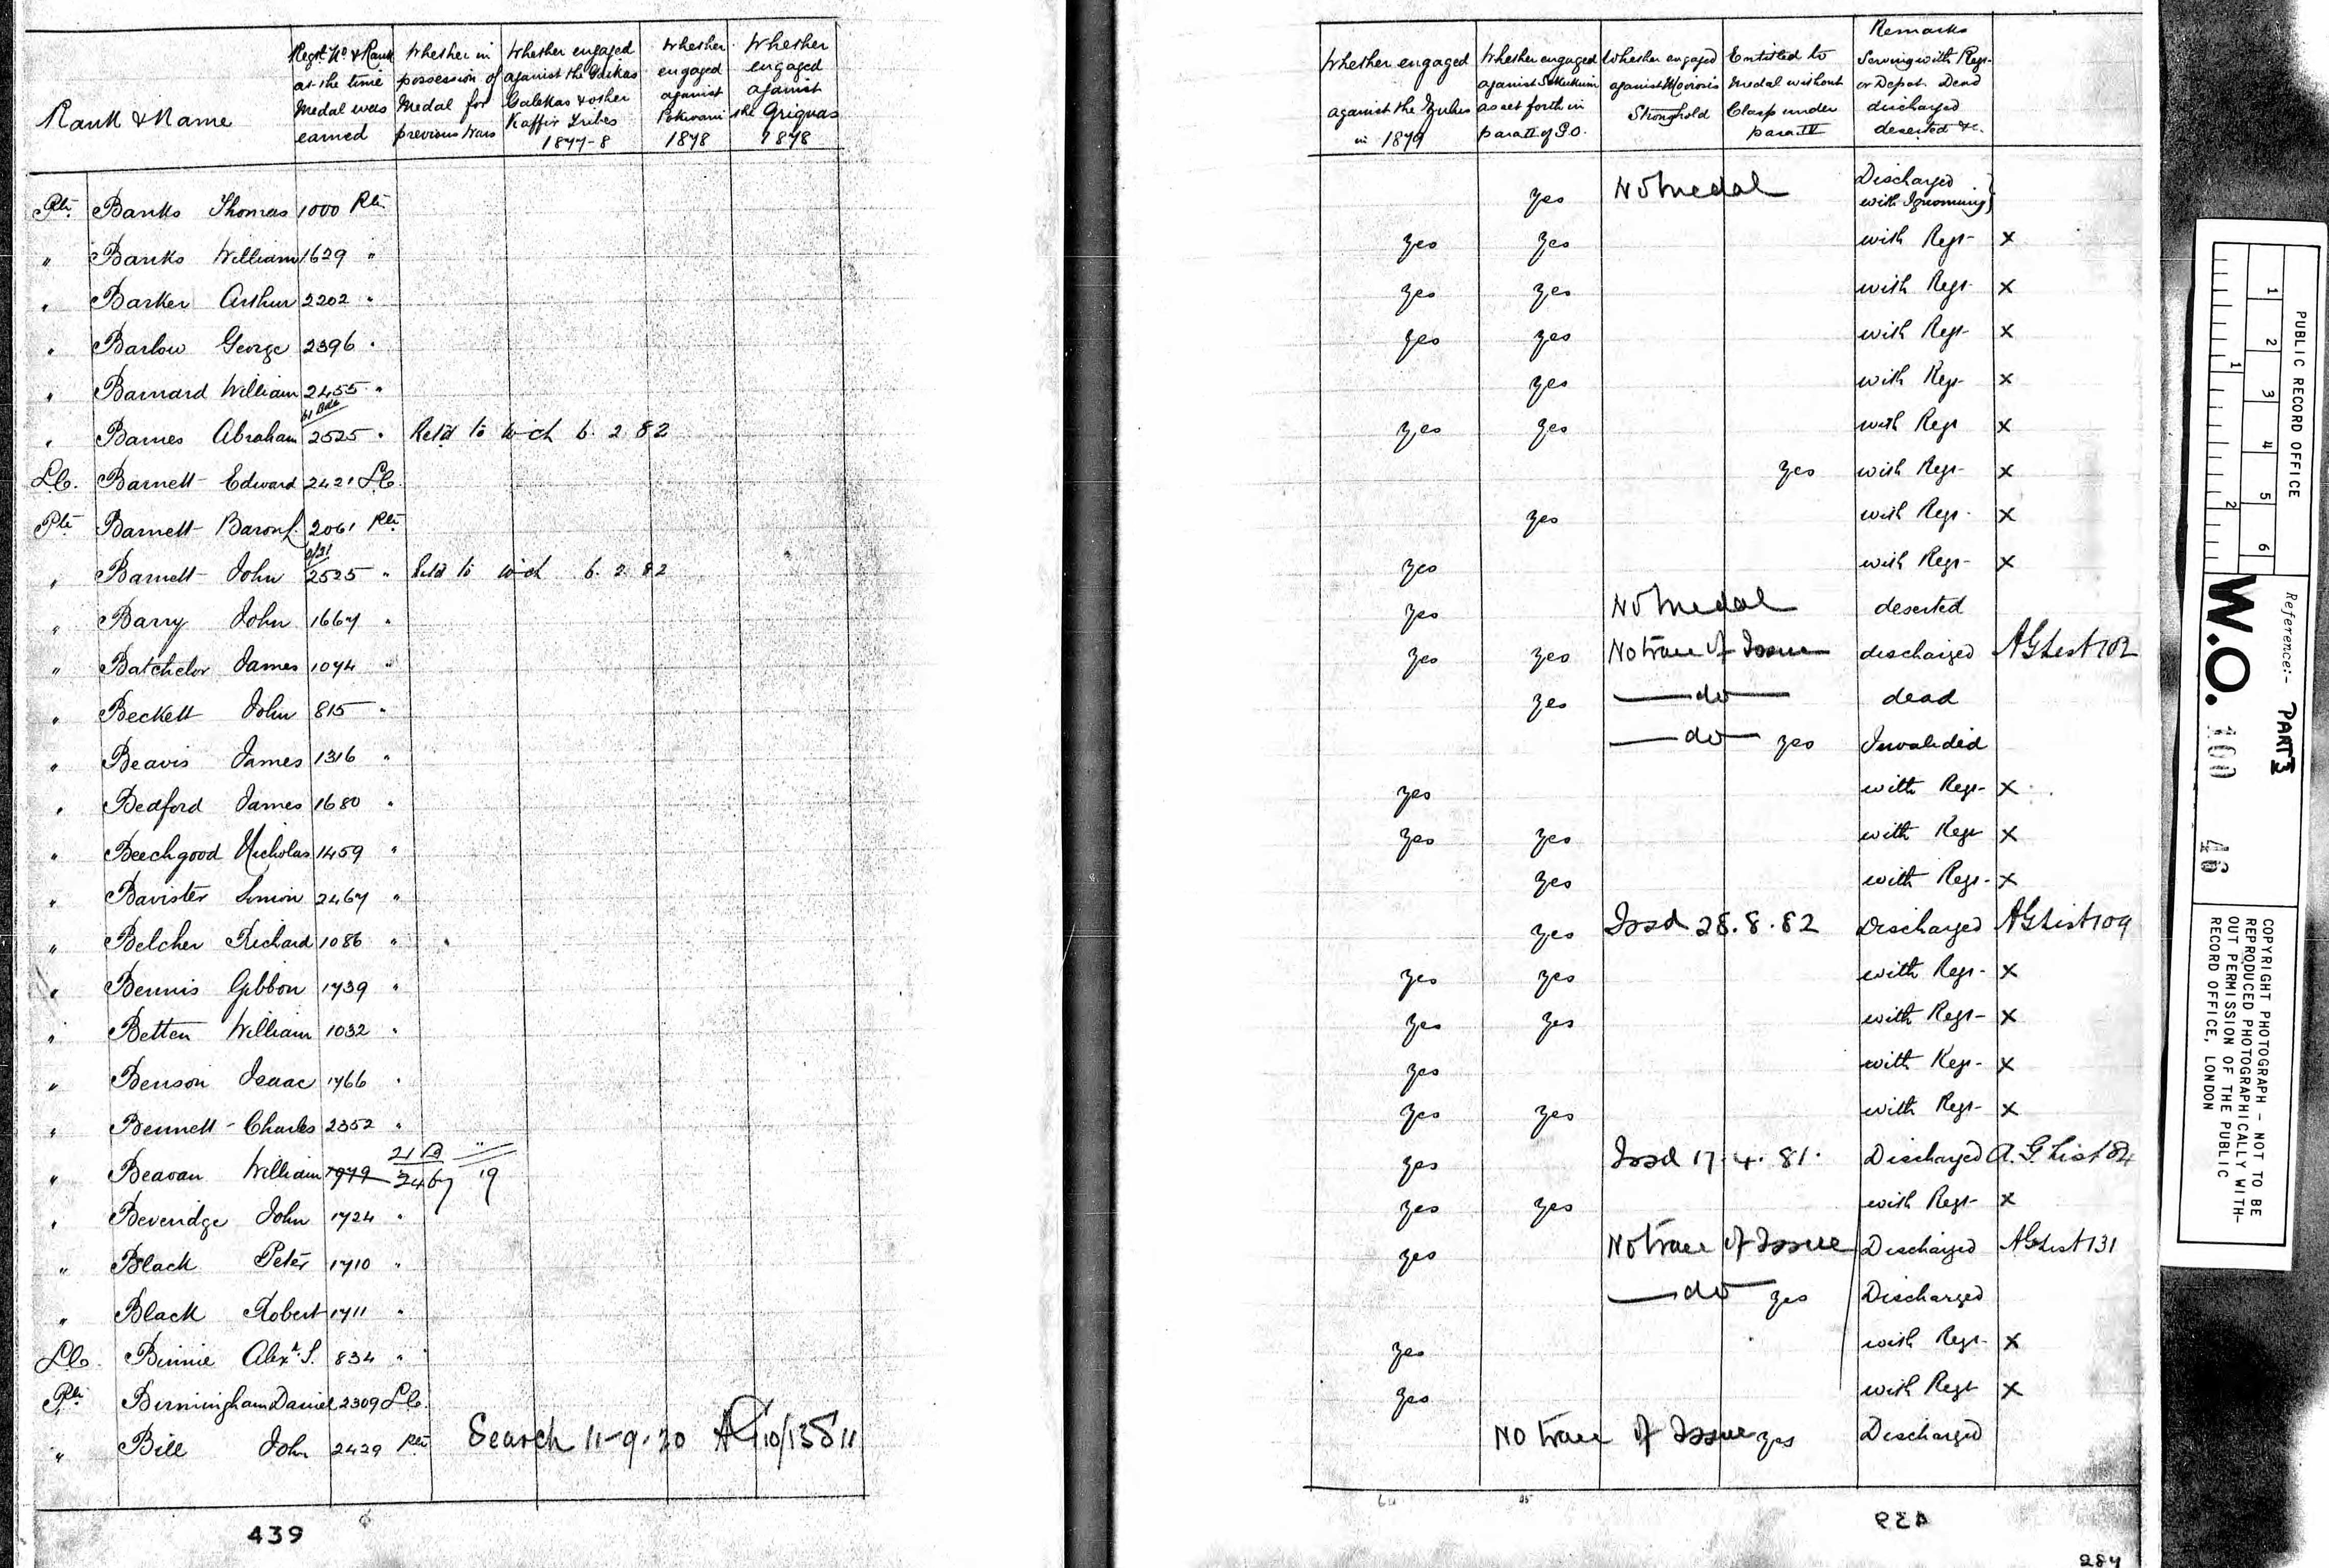 Rank & Name
Regtl No & Rank at the time Medal was earned
Whether in possession of Medal for previous Wars
Whether engaged against the Gaikas Galekas & other Kaffir Tribes 1877-8
Whether engaged against Pokwani 1878
Whether engaged against the Griquas 1878
Whether engaged against the Zulus in 1879
Whether engaged against Sekukuni as set forth in para II of G.O.
Whether engaged against Moirosis Stronghold
Entitled to Medal without Clasp under para IV
Remarks Serving with Regt- or Depot. Dead discharged deserted &c.
Pte Banks Thomas 1000 Pte yes No medal Discharged with Ignominy }
" Banks William 1629 " yes yes with Regt- x
" Barker Arthur 2202 " yes yes with Regt- x
" Barlow George 2396 " yes yes with Regt- x
" Barnard William 2455 " yes with Regt- x
" Barnes Abraham 2525 " Retd to wch 6.2.82 yes yes with Regt x
L.C. Barnett Edward 2421 L.C. yes with Regt- x
Pte Barnett Baron 2061 Pte yes with Regt- x
" Barnett John 2525 " Retd to wch 6.2.82 yes with Regt- x
" Barry John 1667 " yes No medal deserted
" Batchelor James 1074 " yes yes No trace of Issue discharged AG List 102
" Beckett John 815 " yes — do — dead
" Beavis James 1316 " — do — yes Invalided
" Bedford James 1680 " yes with Regt- x
" Beechgood Nicholas 1459 " yes yes with Regt x
" Bavister Simon 2467 " yes with Regt- x
" Belcher Richard 1086 " yes Issd 28.8.82 Discharged AG List 109
" Bennis Gibbon 1739 " yes yes with Regt- x
" Betten William 1032 " yes yes with Regt- x
" Benson Isaac 1766 " yes with Regt- x
" Bennett Charles 2352 " yes yes with Regt- x
21 B "
" Beavan William 1979 2467 19 yes Issd 17.4.81. Discharged A.G. List 84
" Beveridge John 1724 " yes yes with Regt- x
" Black Peter 1710 " yes No trace of Issue Discharged AG List 131
" Black Robert 1711 " — do — yes Discharged
L.C. Binnie Alexr. S. 834 " yes with Regt- x
Pte Birmingham Daniel 2309 L.C. yes with Regt x
" Bill John 2429 Pte Search 11-9-20 No trace of Issue yes Discharged
439
439
284
PUBLIC RECORD OFFICE
1 2 3 4 5 6
1 2
Reference:- PART 3
W.O. 100 46
COPYRIGHT PHOTOGRAPH - NOT TO BE
REPRODUCED PHOTOGRAPHICALLY WITH-
OUT PERMISSION OF THE PUBLIC
RECORD OFFICE, LONDON